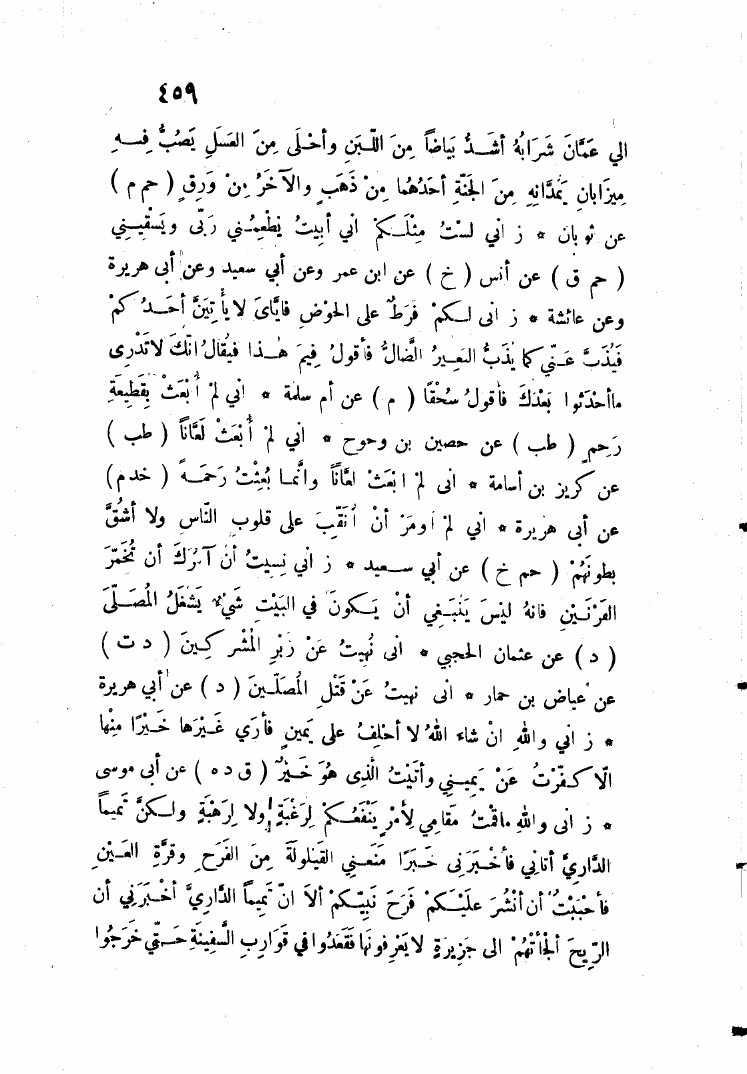 ٤٥٩
الي عَمَّانَ شَرَابُهُ أشَدُّ بَيَاضاً مِنَ اللَّبَنِ وأحْلَى مِنَ العَسَلِ يَصُبُّ فِيهِ
مِيزَابانِ يَمُدَّانِهِ مِنَ الجَنَّةِ أحَدُهُما مِنْ ذَهَبٍ والآخَرُ مِنْ وَرِقٍ ( حم م )
عن ثوبان * ز اني لستُ مِثْلَكُمْ اني أبِيتُ يُطْعِمُنِي رَبّى ويَسْقِينِي
( حم ق ) عن أنس ( خ ) عن ابن عمر وعن أبي سعيد وعن أبى هريرة
وعن عائشة * ز انى لَكُمْ فَرَطٌ على الحَوْضِ فايَّاىَ لا يأْتِيَنَّ أحَدُكُمْ
فَيُذَبَّ عَنّي كما يُذَبُّ البَعِيرُ الضَّالُّ فأقولُ فِيمَ هَذا فيُقالُ انَّكَ لاتَدْرِى
ماأحْدَثوا بَعْدَكَ فأقولُ سُحْقًا ( م ) عن أم سلمة * اني لمْ أُبْعَثْ بِقَطِيعَةِ
رَحِمٍ ( طب ) عن حصين بن وحوح * اني لمْ أُبْعَثْ لَعَّاناً ( طب )
عن كريز بن أسامة * انى لمْ ابْعَثْ لعَّاناً وانَّما بُعِثْتُ رَحَمةً ( خدم )
عن أبى هريرة * اني لمْ اومَرْ أنْ أنَقِّبَ على قلوبِ النَّاسِ ولا أشُقَّ
بطونَهُمْ ( حم خ ) عن أبي سعيد * ز اني نسِيتُ أن آمُرَكَ أن تُخَمِّرَ
القَرْنَيْنِ فانهُ ليْسَ يَنْبَغِي أنْ يَكونَ في البَيْتِ شَيْءٌ يَشْغَلُ المُصَلّىَ
( د ) عن عثمان الحجبي * انى نُهِيتُ عَنْ زَبْرِ المُشْرِكِينَ ( د ت )
عن عياض بن حمار * انى نهيتُ عَنْ قَتْلِ المُصَلِّينَ ( د ) عن أبي هريرة
* ز اني واللهِ انْ شاء اللهُ لا أحْلِفُ على يَمينٍ فأرَي غَيْرَها خَيْرًا مِنْها
الاّ كفَّرْتُ عَنْ يَمِينِي وأتَيْتُ الَّذِى هُوَ خَيْرٌ ( ق د ه ) عن أبى موسى
* ز انى والله ماقُمْتُ مَقامِي لِأمْرٍ يَنْفَعُكُمْ لِرَغْبَةٍ ولا لِرَهْبَةٍ ولكنَّ تَمِيماً
الدَّارِيَّ أتانِي فأخْبَرَنِى خَبَرًا مَنَعَنِي القَيْلولَةَ مِنَ الفَرَحِ وقرَّةِ العَيْنِ
فأحْبَبْتُ أن أنْشُرَ علَيْكُمْ فَرَحَ نَبِيِّكُمْ ألاَ انَّ تَمِيماً الدَّارِيَّ أخْبَرَنِي أن
الرِّيحَ ألجَأتْهُمْ الى جَزِيرَةٍ لا يَعْرِفونَها فَقَعَدُوا في قَوَارِبِ السَّفِينَةِ حَتّي خَرَجُوا